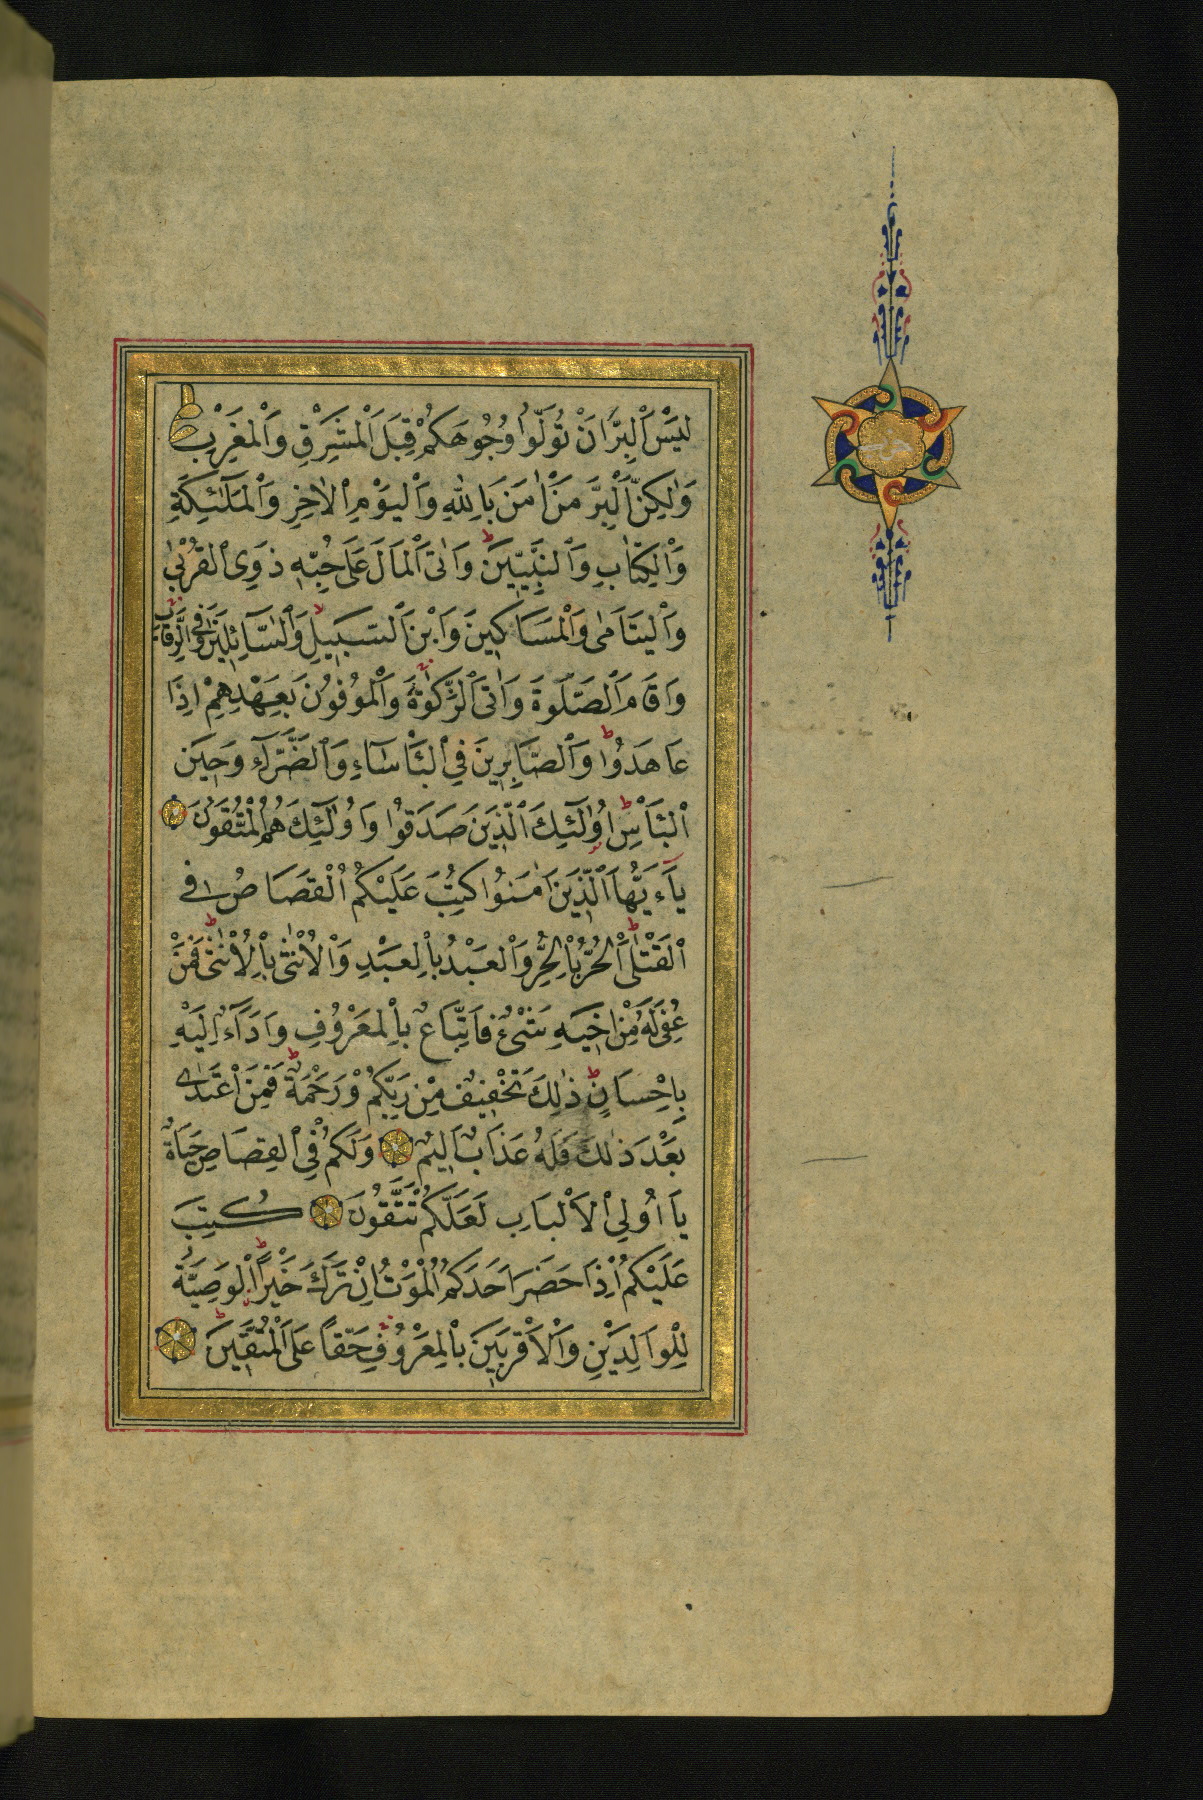 لَيْسَ الْبِرَّ اَنْ تُوَلُّوا وُجُوهَكُمْ قِبَلَ الْمَشْرِقِ وَالْمَغْرِبِ
وَلٰكِنَّ الْبِرَّ مَنْ اٰمَنَ بِاللّٰهِ وَالْيَوْمِ الْاٰخِرِ وَالْمَلٰٓئِكَةِ
وَالْكِتَابِ وَالنَّبِيِّينَ وَاٰتَى الْمَالَ عَلٰى حُبِّهِ ذَوِى الْقُرْبٰى
وَالْيَتَامٰى وَالْمَسَاكِينَ وَابْنَ السَّبِيلِ وَالسَّآئِلِينَ وَفِى الرِّقَابِ
وَاَقَامَ الصَّلٰوةَ وَاٰتَى الزَّكٰوةَ وَالْمُوفُونَ بِعَهْدِهِمْ اِذَا
عَاهَدُوا وَالصَّابِرِينَ فِى الْبَأْسَآءِ وَالضَّرَّآءِ وَحِينَ
الْبَأْسِ اُولٰٓئِكَ الَّذِينَ صَدَقُوا وَاُولٰٓئِكَ هُمُ الْمُتَّقُونَ
يَآءَيُّهَا الَّذِينَ اٰمَنُوا كُتِبَ عَلَيْكُمُ الْقِصَاصُ فِى
الْقَتْلٰى اَلْحُرُّ بِالْحُرِّ وَالْعَبْدُ بِالْعَبْدِ وَالْاُنْثٰى بِالْاُنْثٰى فَمَنْ
عُفِىَ لَهُ مِنْ اَخِيهِ شَىْءٌ فَاتِّبَاعٌ بِالْمَعْرُوفِ وَاَدَآءٌ اِلَيْهِ
بِاِحْسَانٍ ذٰلِكَ تَخْفِيفٌ مِنْ رَبِّكُمْ وَرَحْمَةٌ فَمَنِ اعْتَدٰى
بَعْدَ ذٰلِكَ فَلَهُ عَذَابٌ اَلِيمٌ وَلَكُمْ فِى الْقِصَاصِ حَيَاةٌ
يَا اُولِى الْاَلْبَابِ لَعَلَّكُمْ تَتَّقُونَ كُتِبَ
عَلَيْكُمْ اِذَا حَضَرَ اَحَدَكُمُ الْمَوْتُ اِنْ تَرَكَ خَيْرًا الْوَصِيَّةُ
لِلْوَالِدَيْنِ وَالْاَقْرَبِينَ بِالْمَعْرُوفِ حَقًّا عَلَى الْمُتَّقِينَ